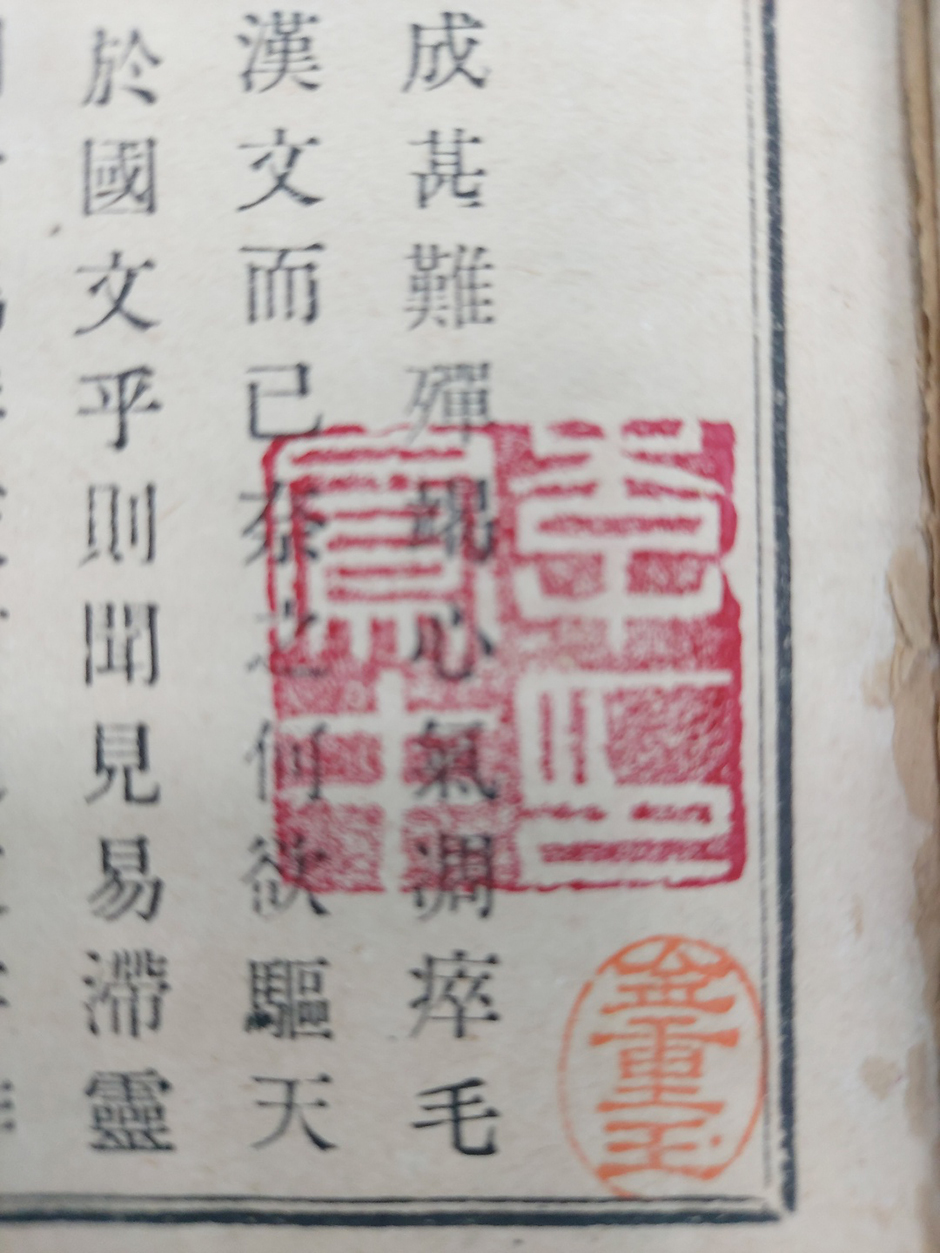 成甚難殫竭心氣凋瘁毛
漢文而已奈之何欲驅天
於國文乎則聞見易滯靈